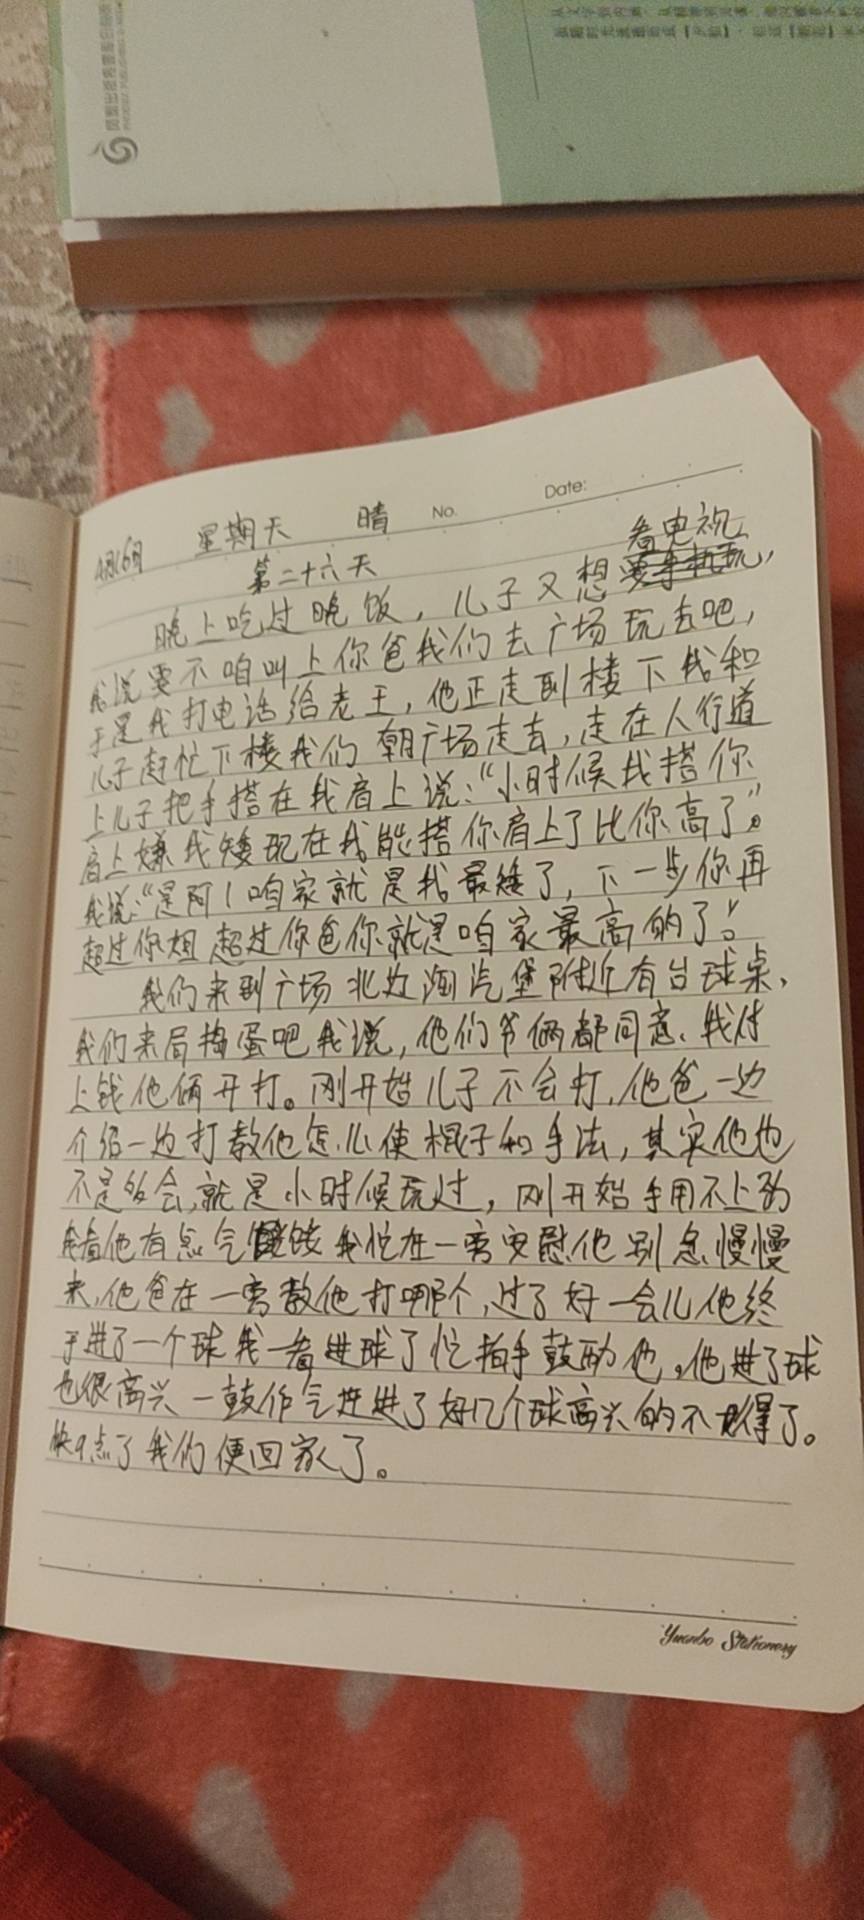 凤凰出版传媒
4月16日 星期天 晴 No. Date:
第二十六天
看电视
晚上吃过晚饭，儿子又想要手机玩，
我说要不咱叫上你爸我们去广场玩去吧，
于是我打电话给老王，他正走到楼下我和
儿子赶忙下楼我们朝广场走去，走在人行道
上儿子把手搭在我肩上说：“小时候我搭你
肩上嫌我矮现在我能搭你肩上了比你高了”。
我说：“是阿！咱家就是我最矮了，下一步你再
超过你姐超过你爸你就是咱家最高的了”！
我们来到广场北边淘汽堡附近有台球桌，
我们来局捣蛋吧我说，他们爷俩都同意、我付
上钱他俩开打。刚开始儿子不会打，他爸一边
介绍一边打教他怎么使棍子和手法，其实他也
不是多会，就是小时候玩过，刚开始手用不上劲
我看他有点气馁我忙在一旁安慰他别急慢慢
来，他爸在一旁教他打哪个，过了好一会儿他终
于进了一个球我一看进球了忙拍手鼓励他。他进了球
也很高兴一鼓作气连进了好几个球高兴的不得了。
快9点了我们便回家了。
Yuanbo Stationery